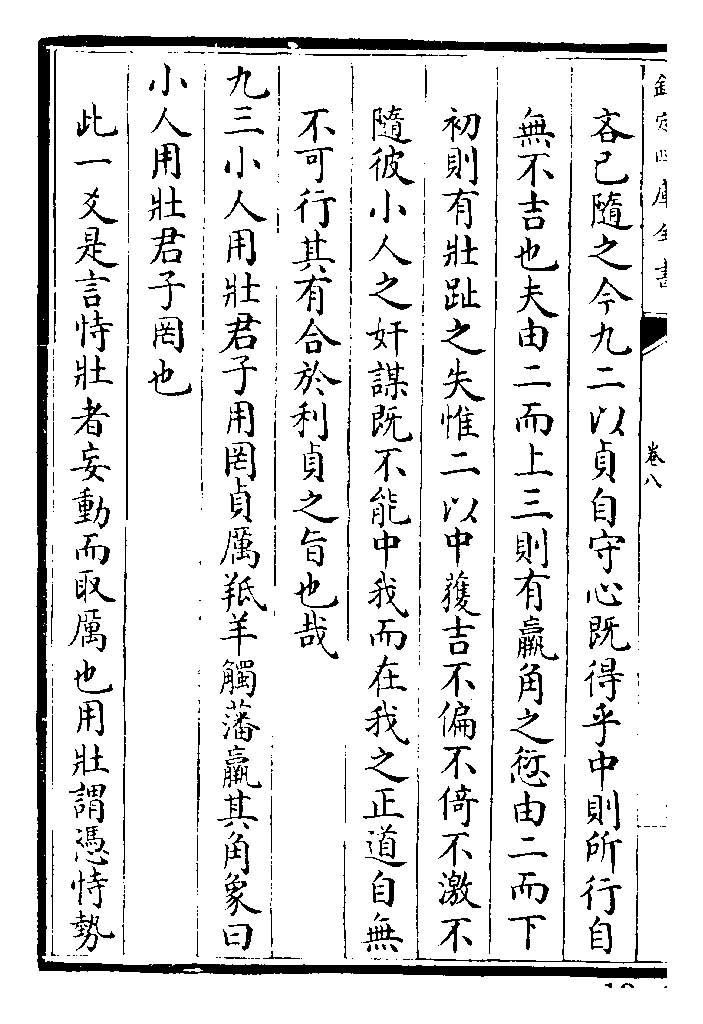 欽定四庫全書
卷八
吝已隨之今九二以貞自守心既得乎中則所行自
無不吉也夫由二而上三則有羸角之愆由二而下
初則有壯趾之失惟二以中獲吉不偏不倚不激不
隨彼小人之奸謀既不能中我而在我之正道自無
不可行其有合於利貞之旨也哉
九三小人用壯君子用罔貞厲羝羊觸藩羸其角象曰
小人用壯君子罔也
此一爻是言恃壯者妄動而取厲也用壯謂憑恃勢